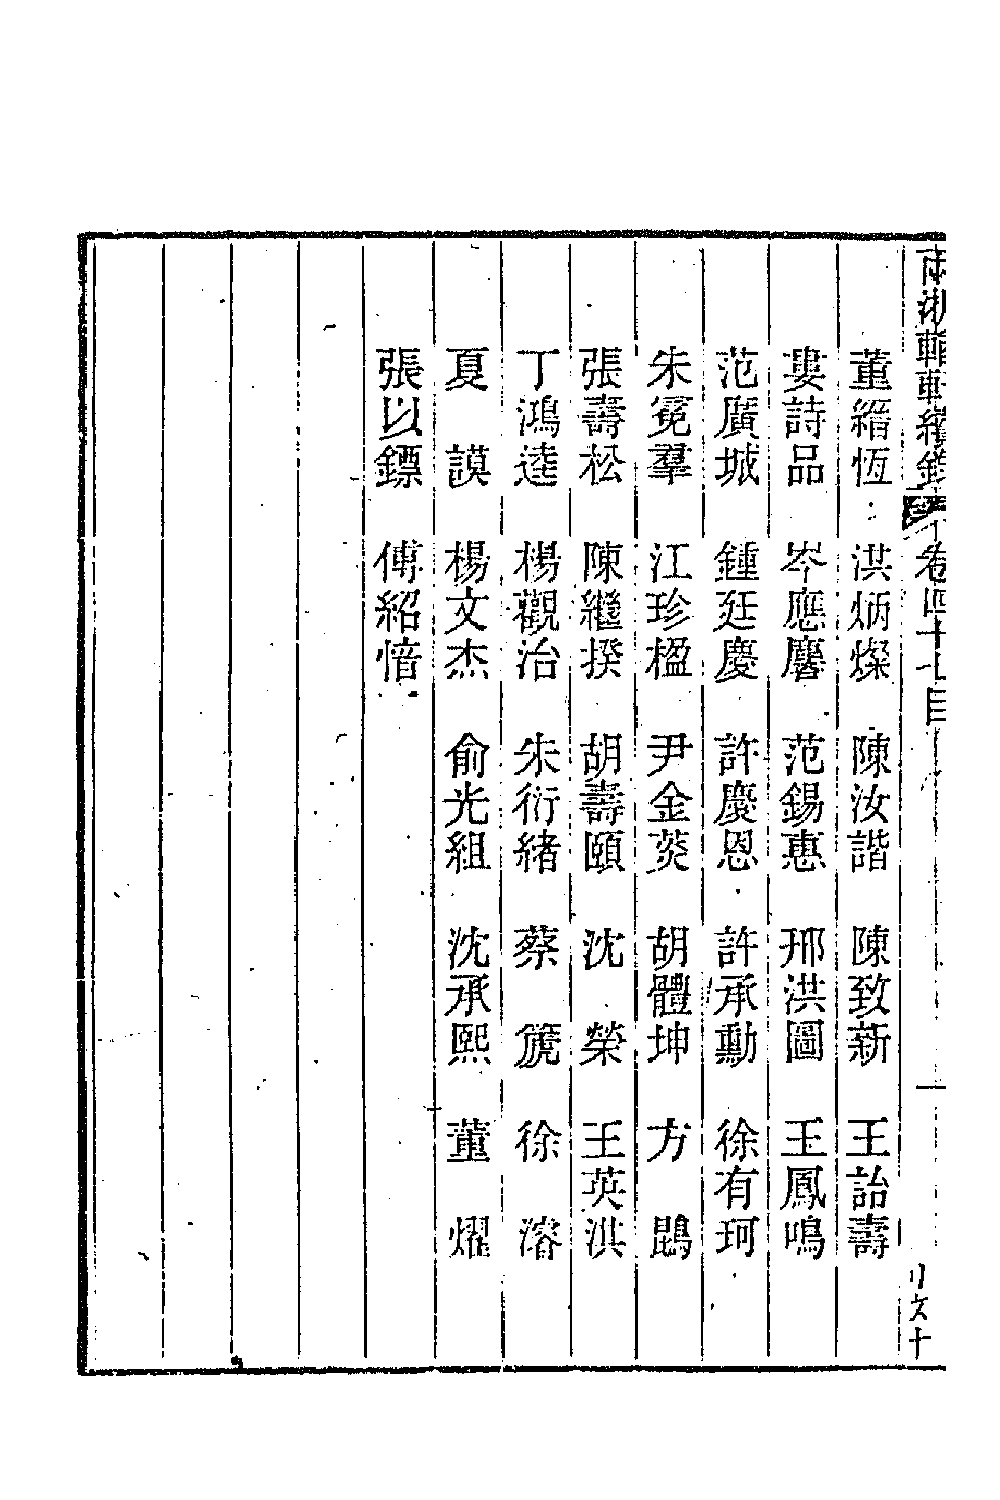 兩浙輶軒續錄 卷四十七目
董縉恆 洪炳燦 陳汝諧 陳致新 王詒壽
婁詩品 岑應麐 范錫惠 邢洪圖 王鳳鳴
范廣城 鍾廷慶 許慶恩 許承勳 徐有珂
朱冕羣 江珍楹 尹金荄 胡體坤 方鵾
張壽松 陳繼揆 胡壽頤 沈榮 王英淇
丁鴻逵 楊觀治 朱衍緒 蔡箎 徐濬
夏謨 楊文杰 俞光組 沈承熙 董燿
張以鏢 傅紹愔